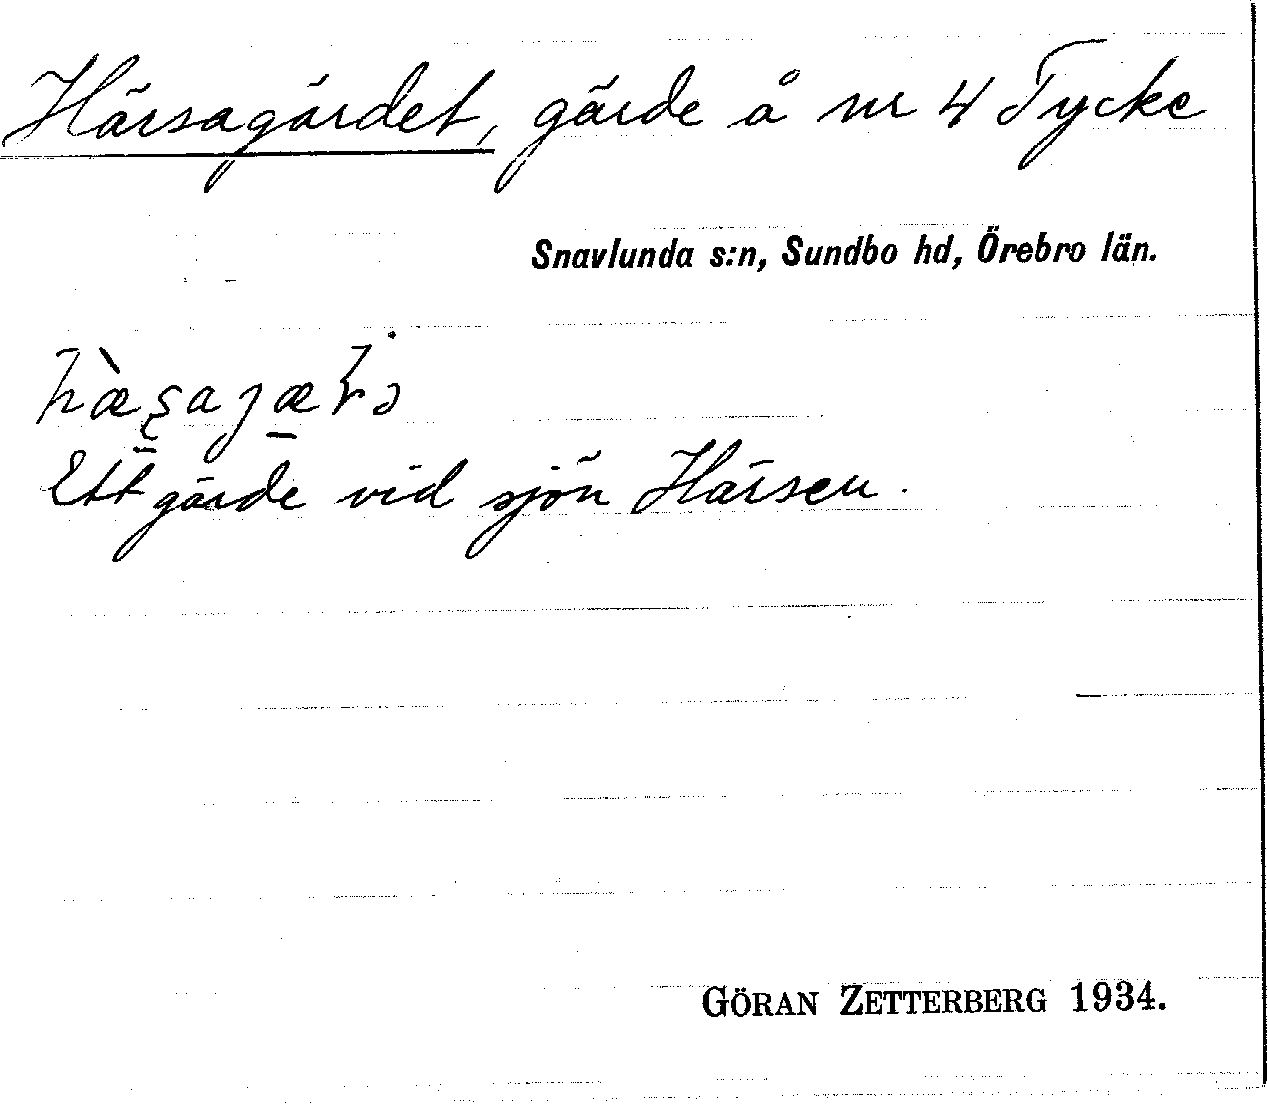 Härsagärdet, gärde å nr 4 Tycke
Snavlunda s:n, Sundbo hd, Örebro län.
Ett gärde vid sjön Härsen.
GÖRAN ZETTERBERG 1934.